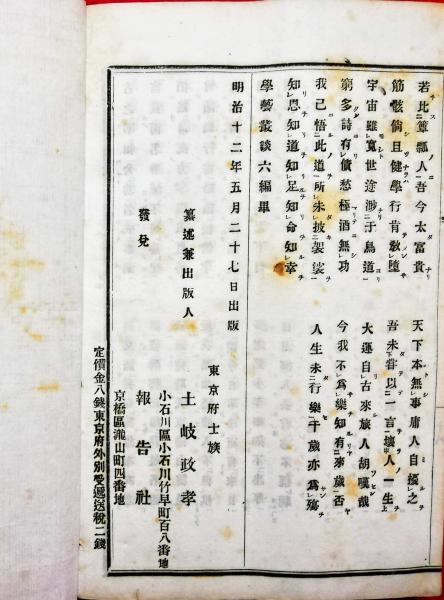 若此簞瓢人吾今太富貴　天下本無事庸人自擾之
筋骸尙且健學行肯敎墮　吾未甞以一言壞人一生
宇宙雖寛世途渉于鳥道　大運自古來旅人胡嘆哉
窮多詩有債愁極酒無功　今我不爲樂知有來歳否
我已悟此道所未披袈裟　人生未行樂千歳亦爲殤
知恩知道知足知命知幸
學藝叢談六編畢
明治十二年五月二十七日出版
東京府士族
纂述兼出版人　土岐政孝
小石川區小石川竹早町百八番地
發兌　報告社
京橋區瀧山町四番地
定價金八錢東京府外別受遞送税二錢